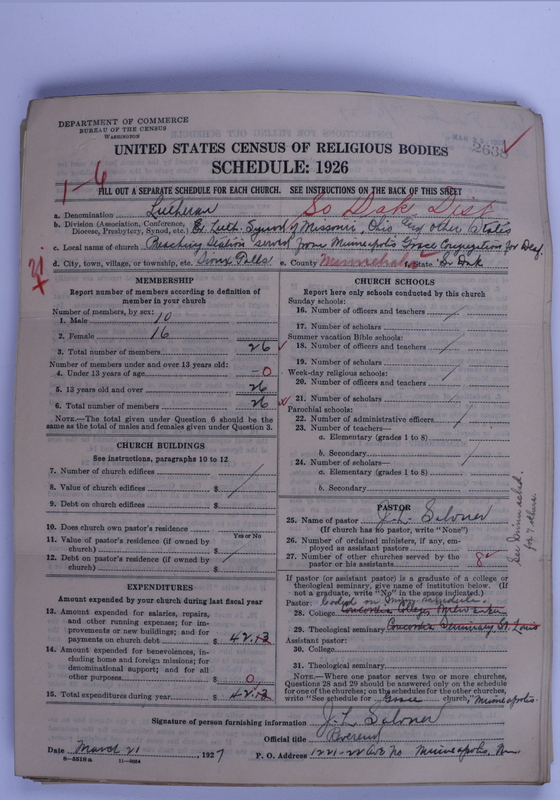 DEPARTMENT OF COMMERCE
BUREAU OF THE CENSUS
WASHINGTON
2638
UNITED STATES CENSUS OF RELIGIOUS BODIES
SCHEDULE: 1926
1-6
FILL OUT A SEPARATE SCHEDULE FOR EACH CHURCH. SEE INSTRUCTIONS ON THE BACK OF THIS SHEET
a. Denomination Lutheran So Dak Dist
b. Division (Association, Conference, Diocese, Presbytery, Synod, etc.) Ev. Luth. Synod of Missouri, Ohio, & other States
c. Local name of church Preaching Station served from Minneapolis Grace Congregation for Deaf
d. City, town, village, or township, etc. Sioux Falls e. County Minnehaha f. State So Dak
MEMBERSHIP
Report number of members according to definition of member in your church
Number of members, by sex:
1. Male 10
2. Female 16
3. Total number of members 26
Number of members under and over 13 years old:
4. Under 13 years of age 0
5. 13 years old and over 26
6. Total number of members 26
NOTE.—The total given under Question 6 should be the same as the total of males and females given under Question 3.
CHURCH BUILDINGS
See instructions, paragraphs 10 to 12.
7. Number of church edifices
8. Value of church edifices $
9. Debt on church edifices $
10. Does church own pastor's residence
Yes or No
11. Value of pastor's residence (if owned by church) $
12. Debt on pastor's residence (if owned by church) $
EXPENDITURES
Amount expended by your church during last fiscal year
13. Amount expended for salaries, repairs, and other running expenses; for improvements or new buildings; and for payments on church debt $
14. Amount expended for benevolences, including home and foreign missions; for denominational support; and for all other purposes $ 0
15. Total expenditures during year $
CHURCH SCHOOLS
Report here only schools conducted by this church
Sunday schools:
16. Number of officers and teachers
17. Number of scholars
Summer vacation Bible schools:
18. Number of officers and teachers
19. Number of scholars
Week-day religious schools:
20. Number of officers and teachers
21. Number of scholars
Parochial schools:
22. Number of administrative officers
23. Number of teachers—
a. Elementary (grades 1 to 8)
b. Secondary
24. Number of scholars—
a. Elementary (grades 1 to 8)
b. Secondary
PASTOR
25. Name of pastor J. L. Salvner
(If church has no pastor, write "None")
26. Number of ordained ministers, if any, employed as assistant pastors
27. Number of other churches served by the pastor or his assistants 8
If pastor (or assistant pastor) is a graduate of a college or theological seminary, give name of institution below. (If not a graduate, write "No" in the space indicated.)
Pastor:
28. College Concordia College Milwaukee
29. Theological seminary Concordia Seminary St. Louis
Assistant pastor:
30. College
31. Theological seminary
NOTE.—Where one pastor serves two or more churches, Questions 28 and 29 should be answered only on the schedule for one of the churches; on the schedules for the other churches, write "See schedule for Grace church, Minneapolis
Signature of person furnishing information J. L. Salvner
Official title Reverend
Date March 21, 1927 P. O. Address 1221-22 Ave No Minneapolis, Mn
8-5518a 11-8634